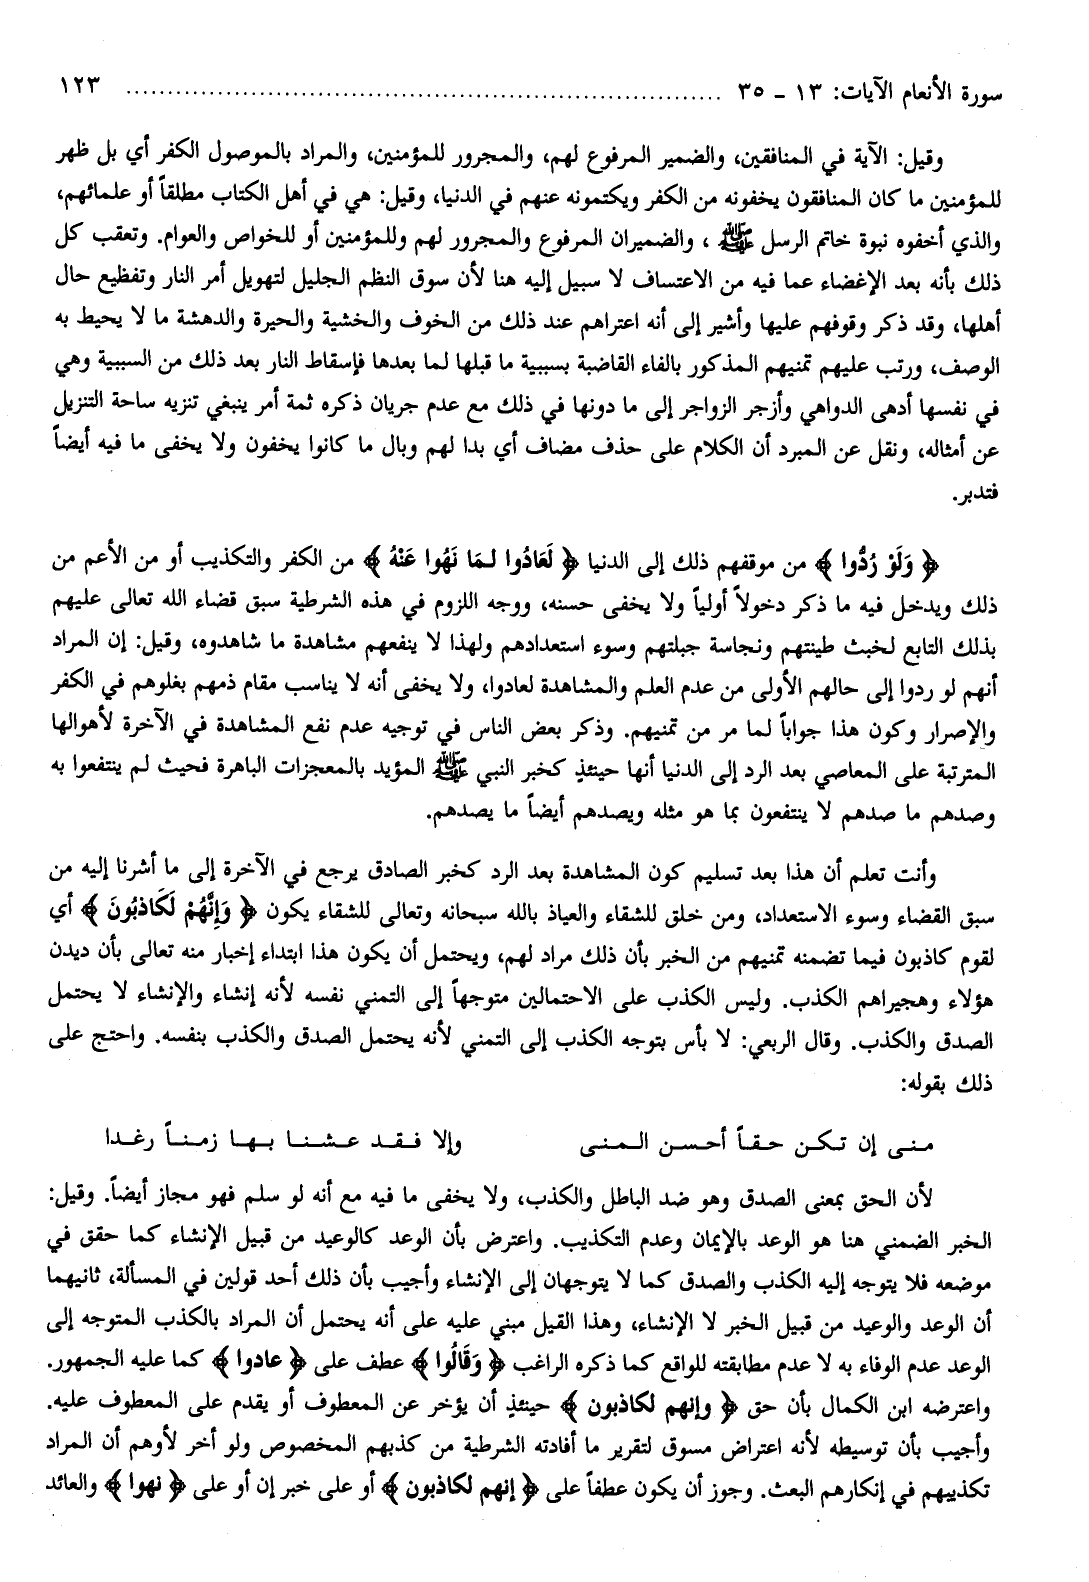 سورة الأنعام الآيات: ١٣ - ٣٥ ........................................................................ ١٢٣
وقيل: الآية في المنافقين، والضمير المرفوع لهم، والمجرور للمؤمنين، والمراد بالموصول الكفر أي بل ظهر
للمؤمنين ما كان المنافقون يخفونه من الكفر ويكتمونه عنهم في الدنيا، وقيل: هي في أهل الكتاب مطلقاً أو علمائهم،
والذي أخفوه نبوة خاتم الرسل ﷺ ، والضميران المرفوع والمجرور لهم وللمؤمنين أو للخواص والعوام. وتعقب كل
ذلك بأنه بعد الإغضاء عما فيه من الاعتساف لا سبيل إليه هنا لأن سوق النظم الجليل لتهويل أمر النار وتفظيع حال
أهلها، وقد ذكر وقوفهم عليها وأشير إلى أنه اعتراهم عند ذلك من الخوف والخشية والحيرة والدهشة ما لا يحيط به
الوصف، ورتب عليهم تمنيهم المذكور بالفاء القاضية بسببية ما قبلها لما بعدها فإسقاط النار بعد ذلك من السببية وهي
في نفسها أدهى الدواهي وأزجر الزواجر إلى ما دونها في ذلك مع عدم جريان ذكره ثمة أمر ينبغي تنزيه ساحة التنزيل
عن أمثاله، ونقل عن المبرد أن الكلام على حذف مضاف أي بدا لهم وبال ما كانوا يخفون ولا يخفى ما فيه أيضاً
فتدبر.
﴿ وَلَوْ رُدُّوا ﴾ من موقفهم ذلك إلى الدنيا ﴿ لَعَادُوا لـمَا نَهُوا عَنْهُ ﴾ من الكفر والتكذيب أو من الأعم من
ذلك ويدخل فيه ما ذكر دخولاً أولياً ولا يخفى حسنه، ووجه اللزوم في هذه الشرطية سبق قضاء الله تعالى عليهم
بذلك التابع لخبث طينتهم ونجاسة جبلتهم وسوء استعدادهم ولهذا لا ينفعهم مشاهدة ما شاهدوه، وقيل: إن المراد
أنهم لو ردوا إلى حالهم الأولى من عدم العلم والمشاهدة لعادوا، ولا يخفى أنه لا يناسب مقام ذمهم بغلوهم في الكفر
والإصرار وكون هذا جواباً لما مر من تمنيهم. وذكر بعض الناس في توجيه عدم نفع المشاهدة في الآخرة لأهوالها
المترتبة على المعاصي بعد الرد إلى الدنيا أنها حينئذٍ كخبر النبي ﷺ المؤيد بالمعجزات الباهرة فحيث لم ينتفعوا به
وصدهم ما صدهم لا ينتفعون بما هو مثله ويصدهم أيضاً ما يصدهم.
وأنت تعلم أن هذا بعد تسليم كون المشاهدة بعد الرد كخبر الصادق يرجع في الآخرة إلى ما أشرنا إليه من
سبق القضاء وسوء الاستعداد، ومن خلق للشقاء والعياذ بالله سبحانه وتعالى للشقاء يكون ﴿ وَإِنَّهُمْ لَكَاذبُونَ ﴾ أي
لقوم كاذبون فيما تضمنه تمنيهم من الخبر بأن ذلك مراد لهم، ويحتمل أن يكون هذا ابتداء إخبار منه تعالى بأن ديدن
هؤلاء وهجيراهم الكذب. وليس الكذب على الاحتمالين متوجهاً إلى التمني نفسه لأنه إنشاء والإنشاء لا يحتمل
الصدق والكذب. وقال الربعي: لا بأس بتوجه الكذب إلى التمني لأنه يحتمل الصدق والكذب بنفسه. واحتج على
ذلك بقوله:
منى إن تكن حقاً أحسن المنى وإلا فقد عشنا بها زمناً رغدا
لأن الحق بمعنى الصدق وهو ضد الباطل والكذب، ولا يخفى ما فيه مع أنه لو سلم فهو مجاز أيضاً. وقيل:
الخبر الضمني هنا هو الوعد بالإيمان وعدم التكذيب. واعترض بأن الوعد كالوعيد من قبيل الإنشاء كما حقق في
موضعه فلا يتوجه إليه الكذب والصدق كما لا يتوجهان إلى الإنشاء وأجيب بأن ذلك أحد قولين في المسألة، ثانيهما
أن الوعد والوعيد من قبيل الخبر لا الإنشاء، وهذا القيل مبني عليه على أنه يحتمل أن المراد بالكذب المتوجه إلى
الوعد عدم الوفاء به لا عدم مطابقته للواقع كما ذكره الراغب ﴿ وَقَالُوا ﴾ عطف على ﴿ عادوا ﴾ كما عليه الجمهور.
واعترضه ابن الكمال بأن حق ﴿ وإنهم لكاذبون ﴾ حينئذٍ أن يؤخر عن المعطوف أو يقدم على المعطوف عليه.
وأجيب بأن توسيطه لأنه اعتراض مسوق لتقرير ما أفادته الشرطية من كذبهم المخصوص ولو أخر لأوهم أن المراد
تكذيبهم في إنكارهم البعث. وجوز أن يكون عطفاً على ﴿ إنهم لكاذبون ﴾ أو على خبر إن أو على ﴿ نهوا ﴾ والعائد